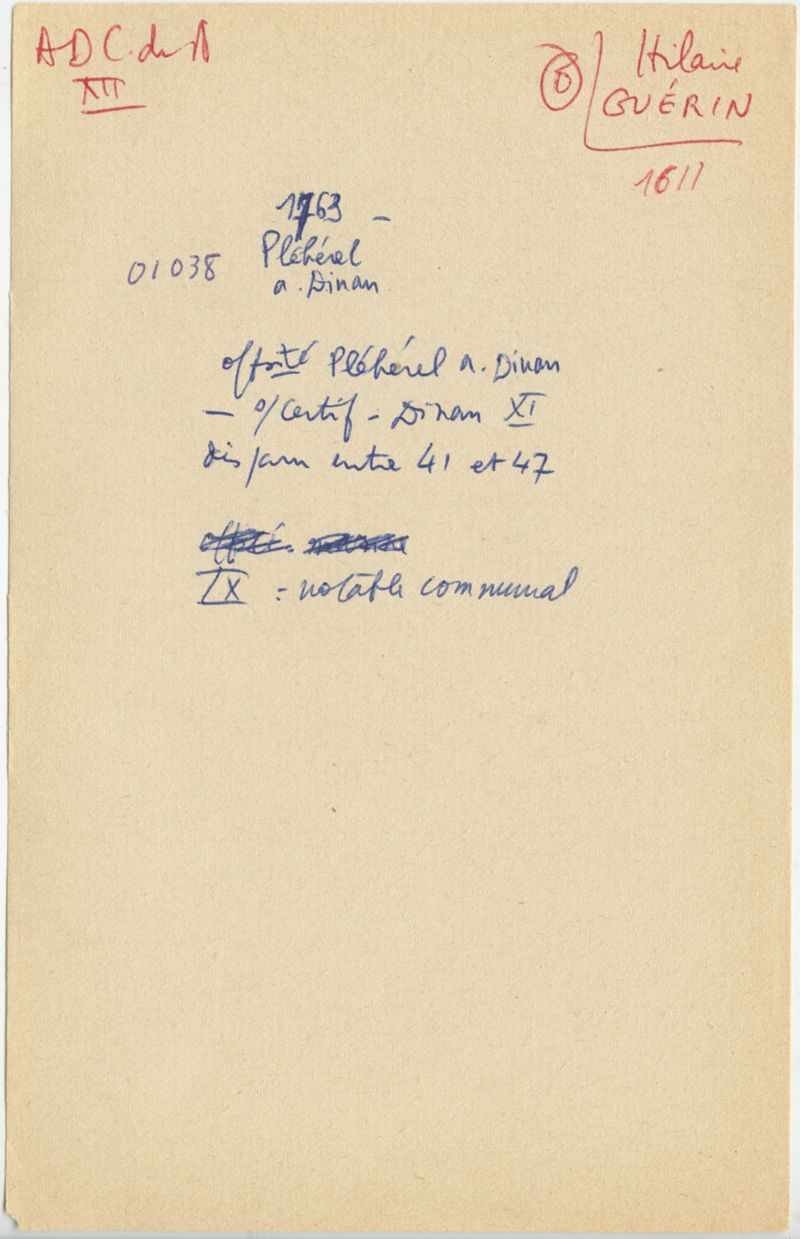 ADC.du N
XII
6 Hilaire
GUÉRIN
1611
1763 -
Pléhérel
a. Dinan
01038
offité Pléhérel a. Dinan
- o/Certif - Dinan XI
disparu entre 41 et 47
IX = notable communal